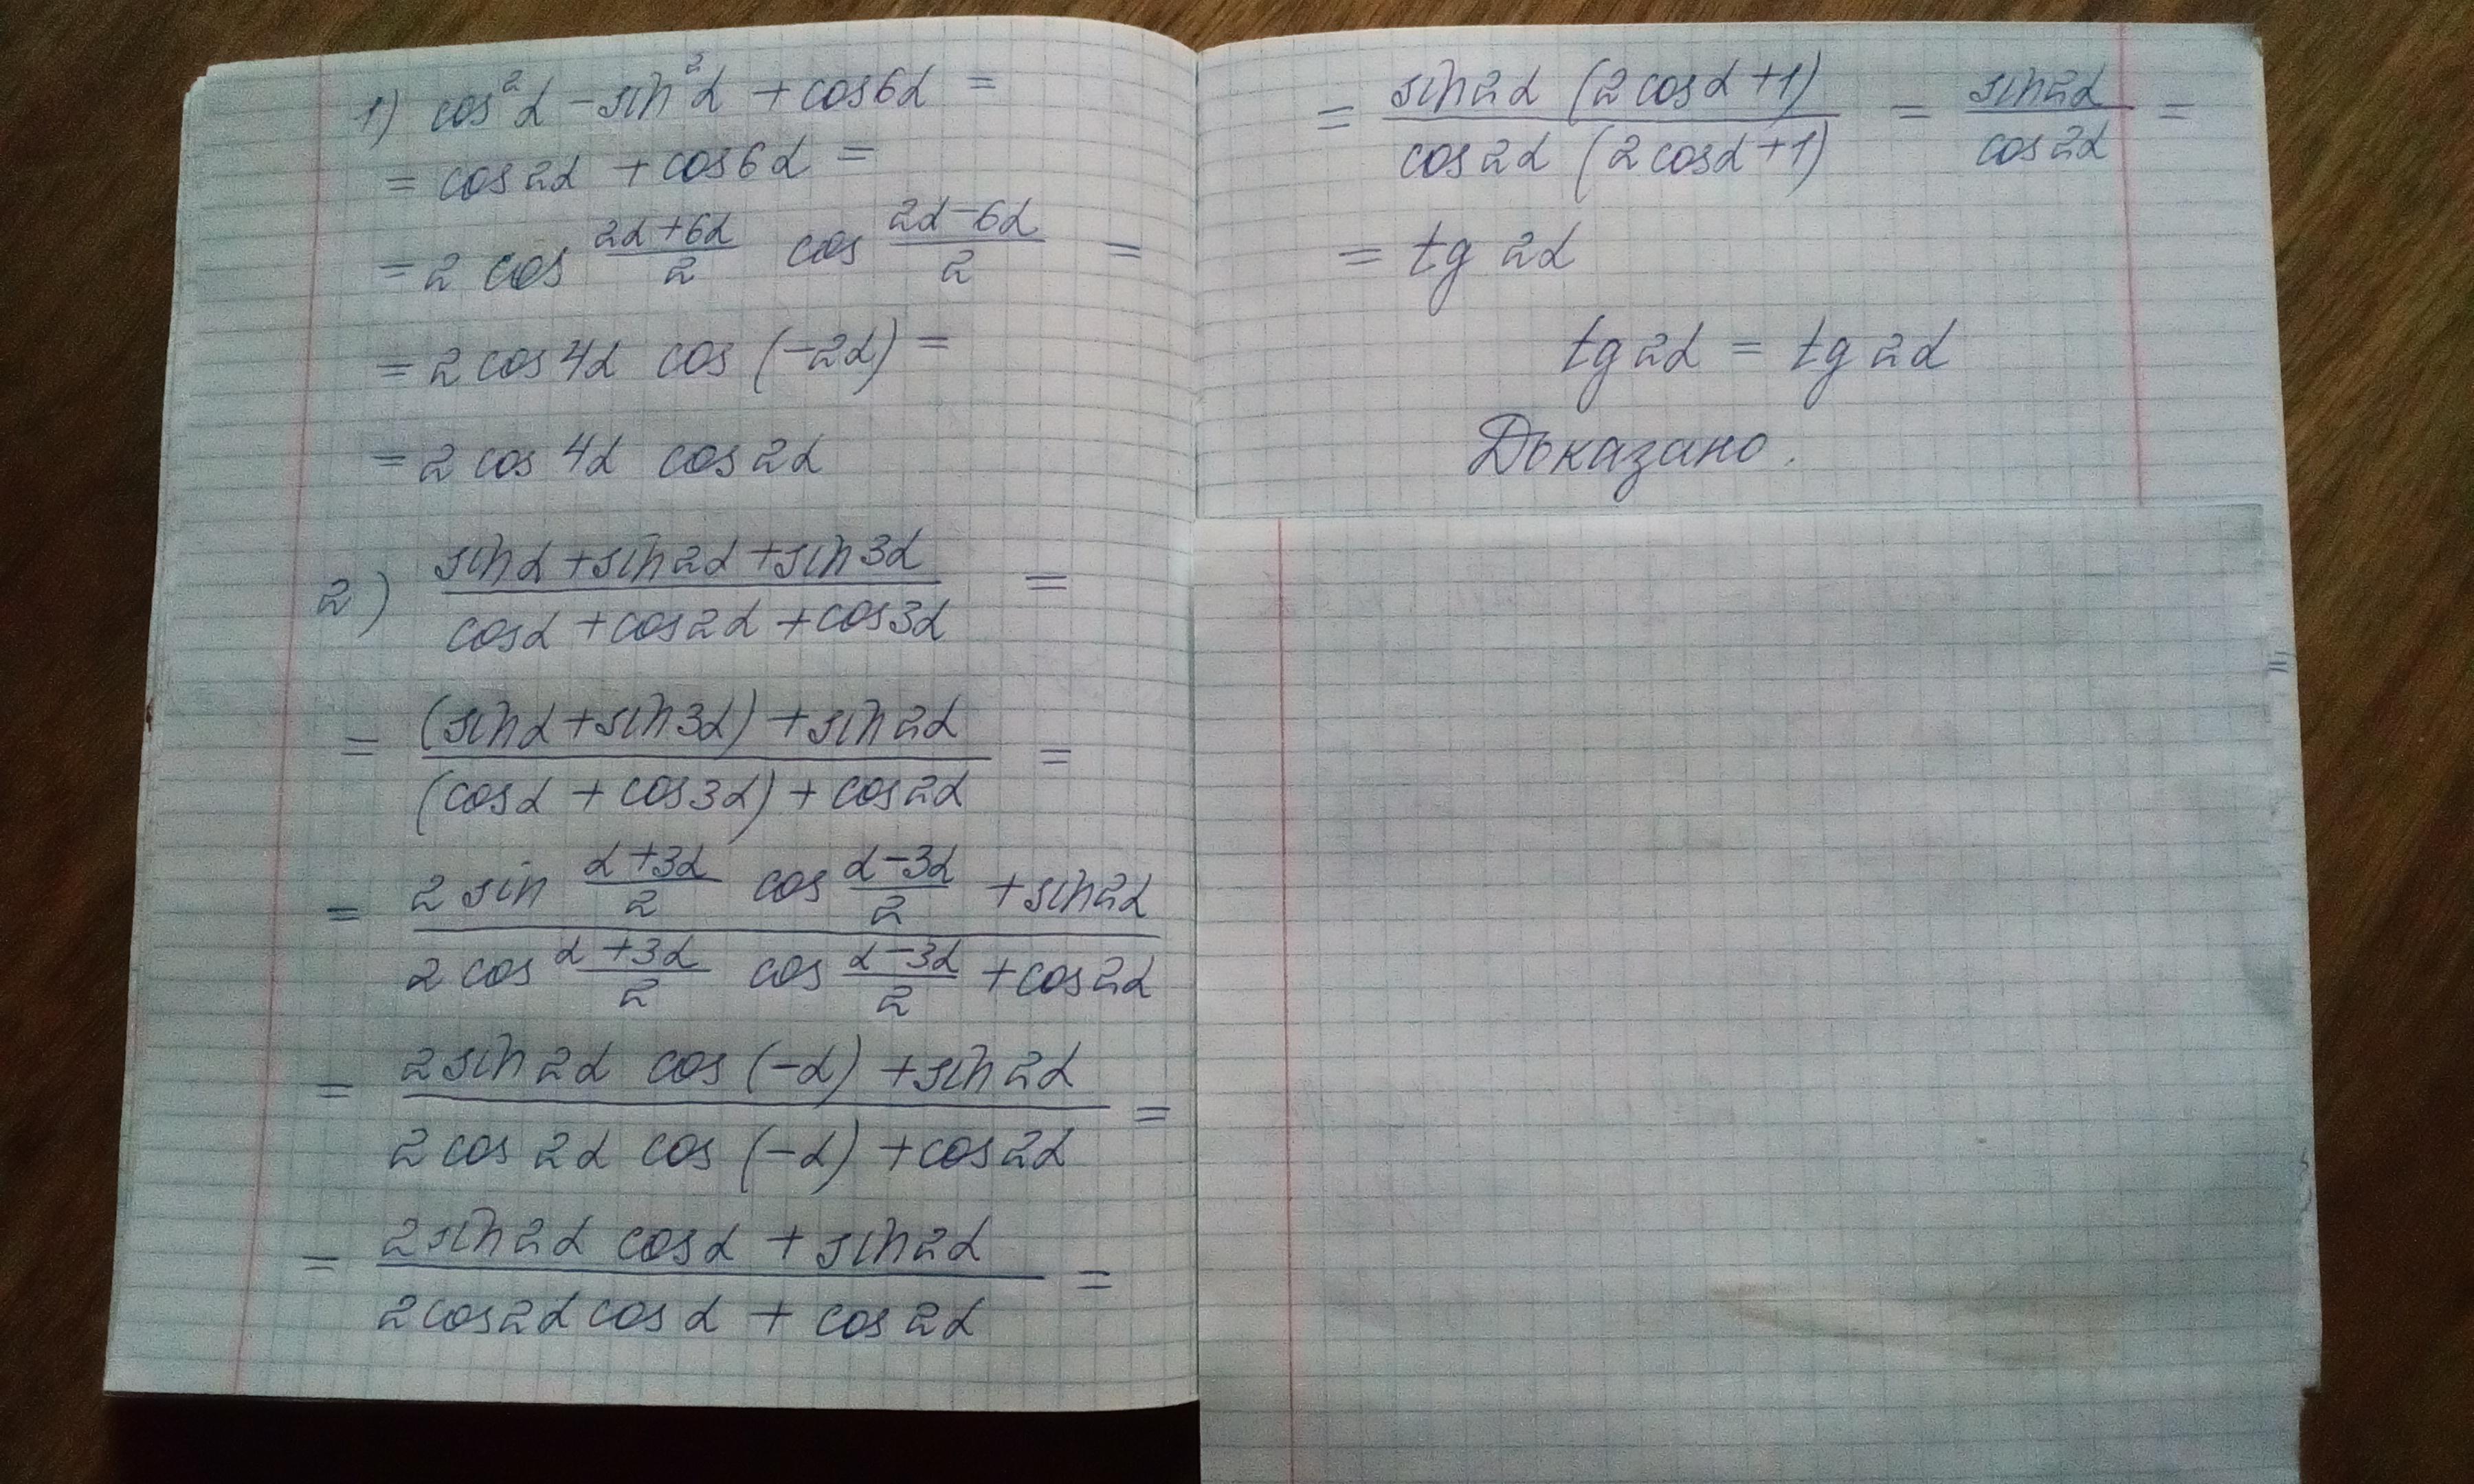 1) cos²α - sin²α + cos6α =
= cos2α + cos6α =
= 2 cos (2α+6α)/2 cos (2α-6α)/2 =
= 2 cos4α cos (-2α) =
= 2 cos 4α cos 2α
2) (sinα + sin2α + sin3α)/(cosα + cos2α + cos3α) =
= ((sinα + sin3α) + sin2α)/((cosα + cos3α) + cos2α) =
= (2 sin (α+3α)/2 cos (α-3α)/2 + sin2α)/(2 cos (α+3α)/2 cos (α-3α)/2 + cos2α)
= (2 sin2α cos (-α) + sin2α)/(2 cos 2α cos (-α) + cos2α) =
= (2 sin2α cosα + sin2α)/(2cos2α cosα + cos2α) =
= (sin2α (2cosα + 1))/(cos2α (2cosα + 1)) = sin2α/cos2α =
= tg 2α
tg2α = tg2α
Доказано.